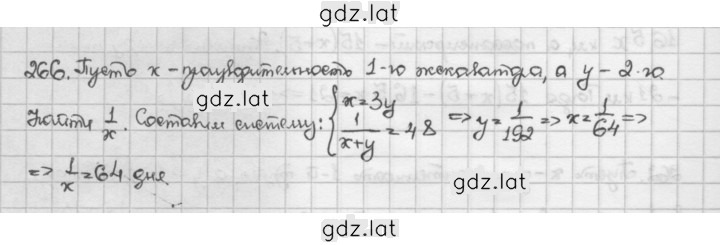 gdz.lat
266. Пусть x - производительность 1-го экскаватора, а y - 2-го.
gdz.lat
Найти 1/x. Составим систему: { x=3y; 1/(x+y) = 48 => y = 1/192 => x = 1/64 =>
=> 1/x = 64 дня
gdz.lat
gdz.lat